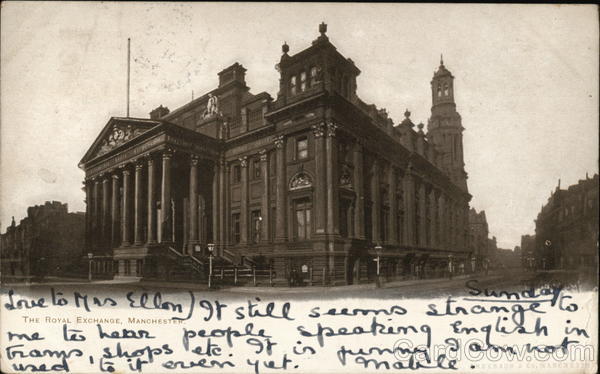 Sunday
(Love to Mrs Ellon) It still seems strange to
THE ROYAL EXCHANGE, MANCHESTER.
me to hear people speaking English in
trams, shops etc. It is funny I am not
used to it even yet. Mabile.
CardCow.com
& CO., MANCHESTER